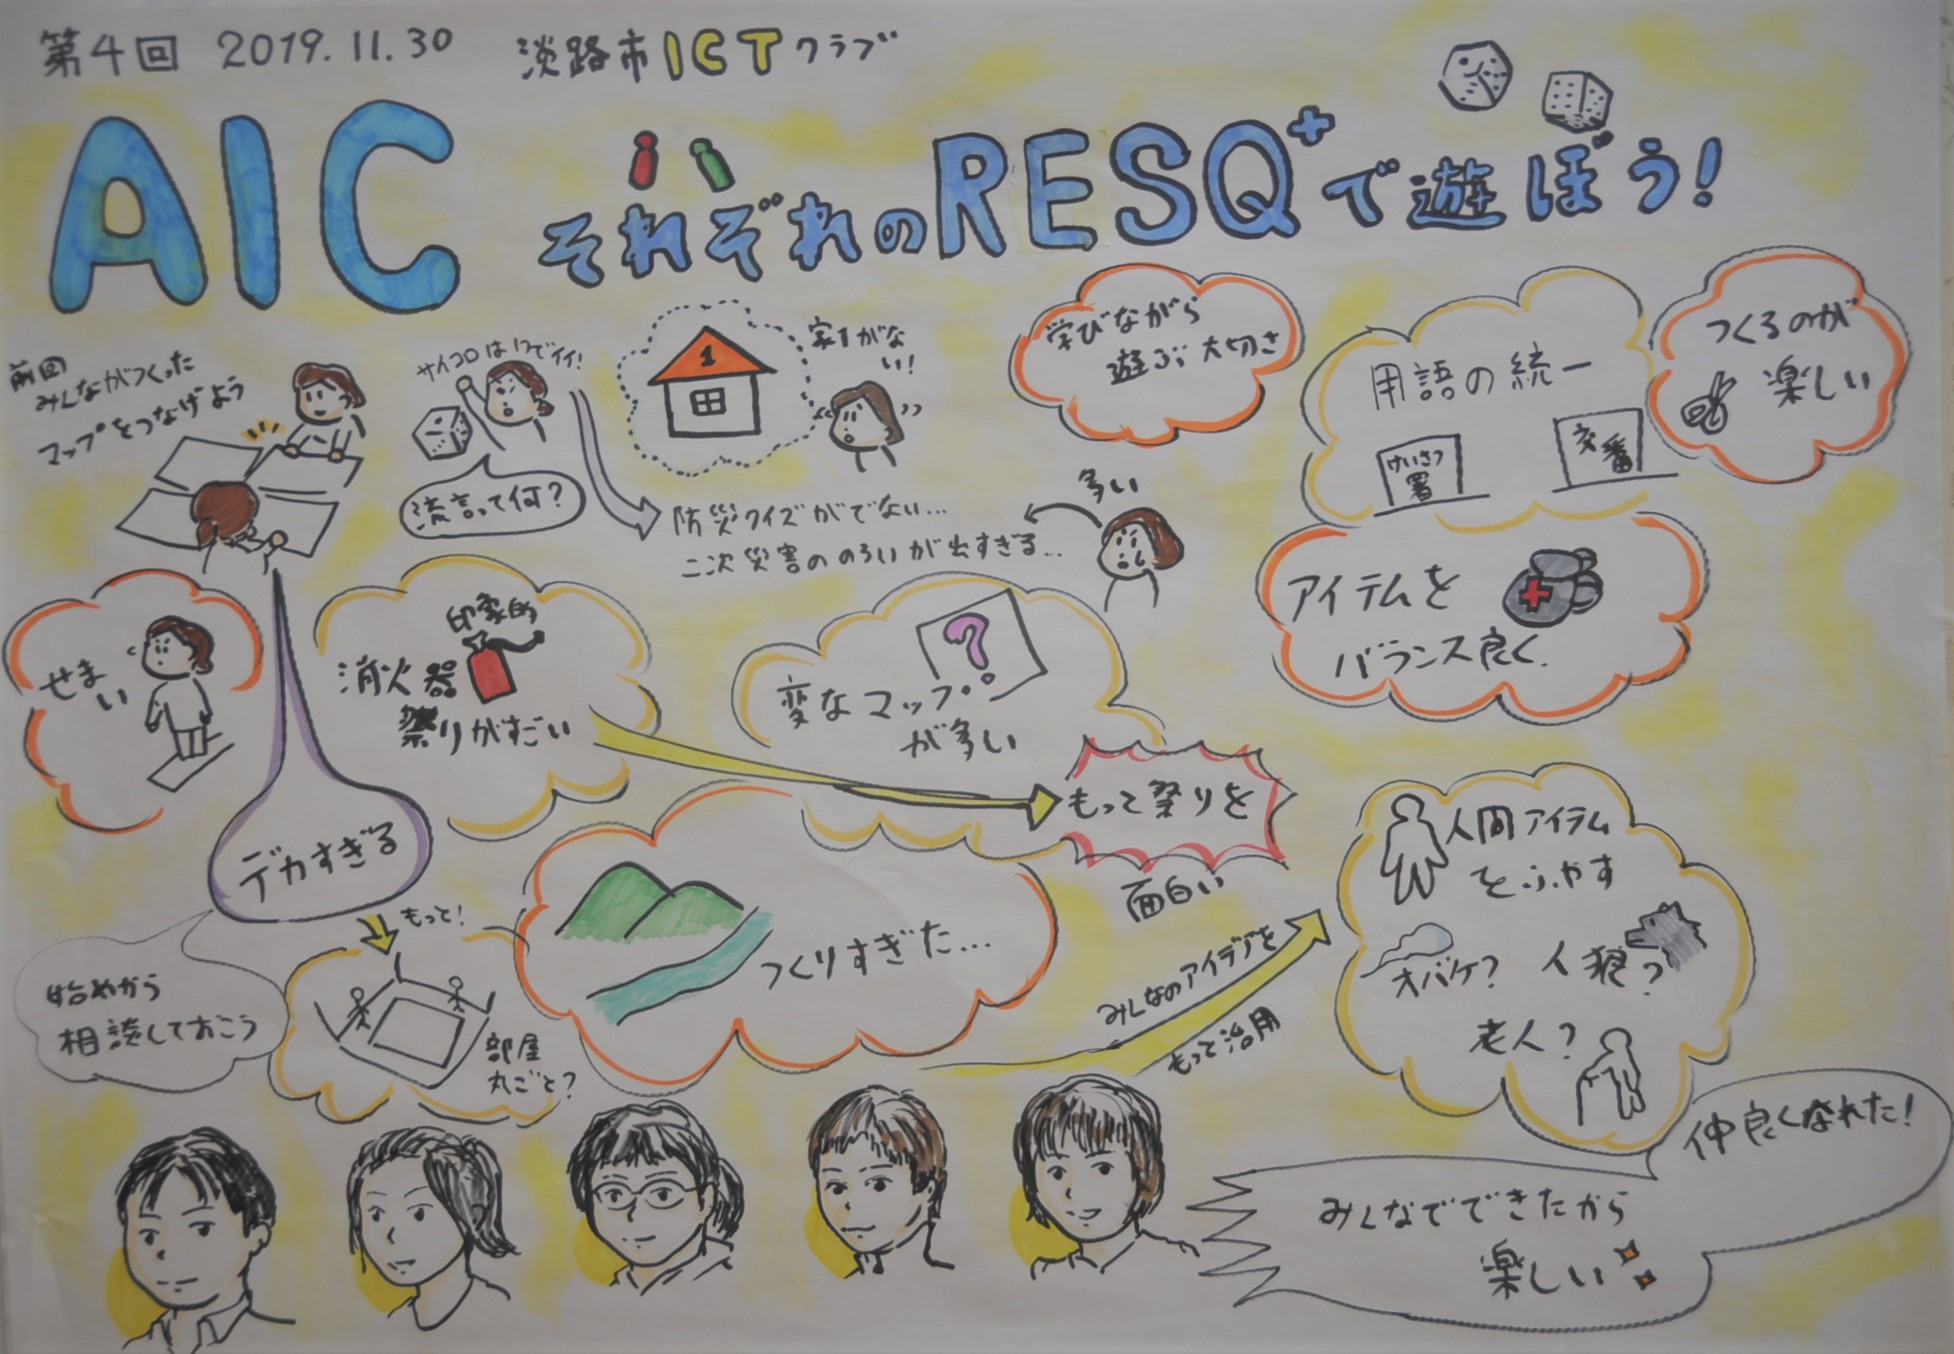 第4回 2019.11.30 淡路市ICTクラブ
AIC
それぞれのRESQ+で遊ぼう!
前回
みんながつくった
マップをつなげよう
サイコロは1コでイイ!
流言って何?
1
家すがな
い!
防災クイズがでない...
二次災害ののろいが出すぎる...
多い
学びながら
遊ぶ大切さ
用語の統一
けいさつ
署
交番
つくるのが
楽しい
アイテムを
バランス良く.
せま
い
印象的
消火器
祭りがすごい
?
変なマップ
が多い
もっと祭りを
面白い
デカすぎる
もっと!
始めから
相談しておこう
部屋
丸ごと?
つくりすぎた...
みんなのアイデアを
もっと活用
人間アイテム
をふやす
オバケ? 人狼?
老人?
仲良くなれた!
みんなでできたから
楽しい